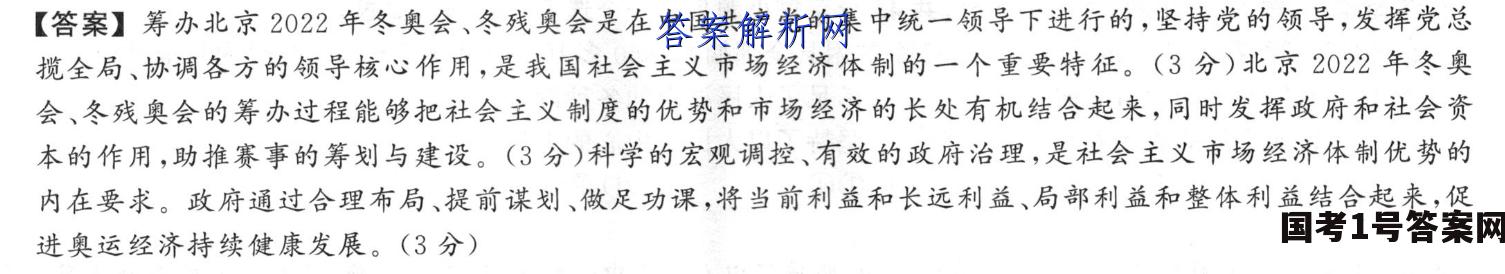 【答案】筹办北京 2022 年冬奥会、冬残奥会是在中国共产党的集中统一领导下进行的,坚持党的领导,发挥党总
答案解析网
揽全局、协调各方的领导核心作用,是我国社会主义市场经济体制的一个重要特征。(3 分)北京 2022 年冬奥
会、冬残奥会的筹办过程能够把社会主义制度的优势和市场经济的长处有机结合起来,同时发挥政府和社会资
本的作用,助推赛事的筹划与建设。(3 分)科学的宏观调控、有效的政府治理,是社会主义市场经济体制优势的
内在要求。政府通过合理布局、提前谋划、做足功课,将当前利益和长远利益、局部利益和整体利益结合起来,促
国考1号答案网
进奥运经济持续健康发展。(3 分)